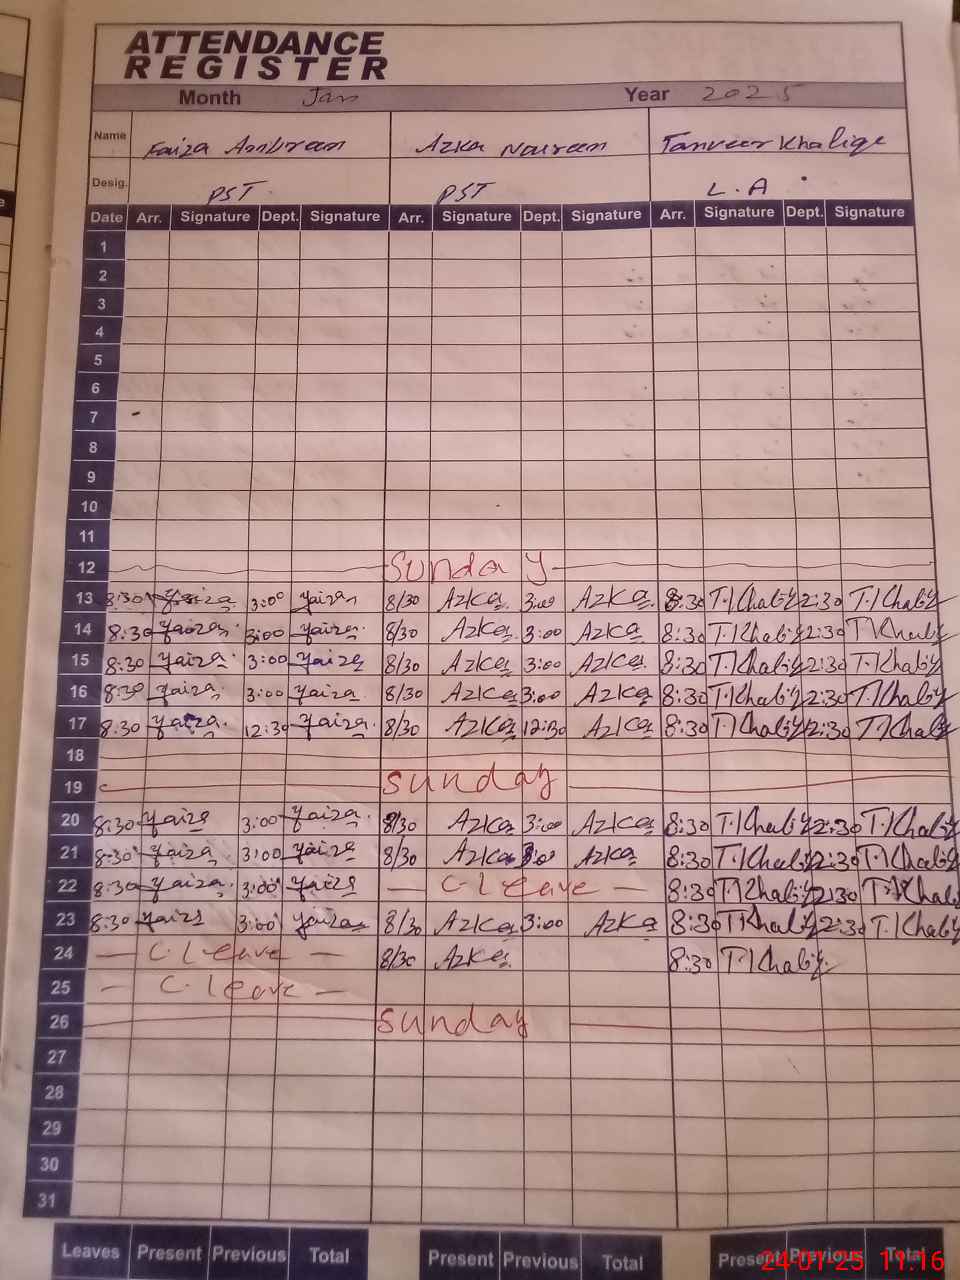 ATTENDANCE
REGISTER
Month Jan Year 2025
Name Faiza Ambreen Azka Noureen Tanveer Khaliqe
Desig. PST PST L.A
Date Arr. Signature Dept. Signature Arr. Signature Dept. Signature Arr. Signature Dept. Signature
1
2
3
4
5
6
7
8
9
10
11
12 Sunday
13 8:30 Faiza 3:00 Faiza 8/30 Azka 3:00 Azka 8:30 T.Khaliq 2:30 T.Khaliq
14 8:30 Faiza 3:00 Faiza 8/30 Azka 3:00 Azka 8:30 T.Khaliq 2:30 T.Khaliq
15 8:30 Faiza 3:00 Faiza 8/30 Azka 3:00 Azka 8:30 T.Khaliq 2:30 T.Khaliq
16 8:30 Faiza 3:00 Faiza 8/30 Azka 3:00 Azka 8:30 T.Khaliq 2:30 T.Khaliq
17 8:30 Faiza 12:30 Faiza 8/30 Azka 12:30 Azka 8:30 T.Khaliq 2:30 T.Khaliq
18
19 Sunday
20 8:30 Faiza 3:00 Faiza 8/30 Azka 3:00 Azka 8:30 T.Khaliq 2:30 T.Khaliq
21 8:30 Faiza 3:00 Faiza 8/30 Azka 3:00 Azka 8:30 T.Khaliq 2:30 T.Khaliq
22 8:30 Faiza 3:00 Faiza — C leave — 8:30 T.Khaliq 2:30 T.Khaliq
23 8:30 Faiza 3:00 Faiza 8/30 Azka 3:00 Azka 8:30 T.Khaliq 2:30 T.Khaliq
24 — C leave — 8/30 Azka 8:30 T.Khaliq
25 — C. leave —
26 Sunday
27
28
29
30
31
Leaves Present Previous Total Present Previous Total Present Previous Total
24-01-25 11:16